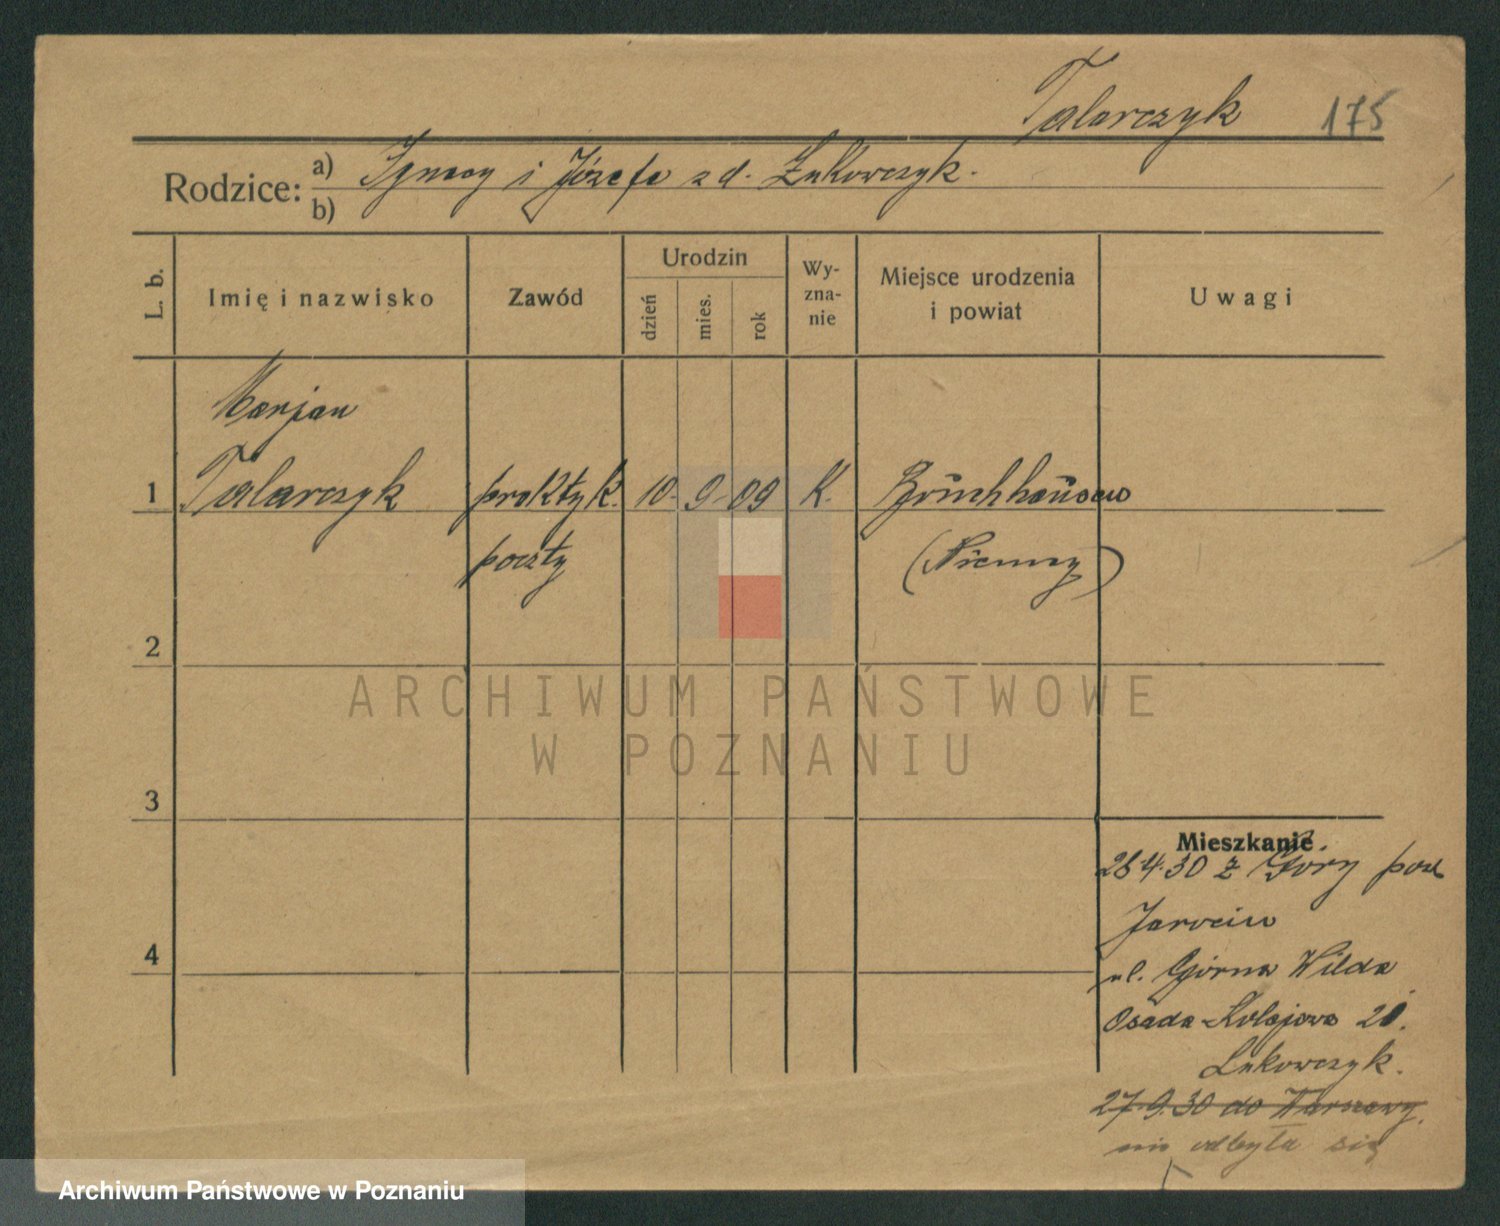 Talarczyk 175
Rodzice: a) Ignacy i Józefa z d. Łukowczyk.
b)
L. b.
Imię i nazwisko
Zawód
Urodzin
dzień
mies.
rok
Wy-
zna-
nie
Miejsce urodzenia
i powiat
Uwagi
Marjan
1 Talarczyk praktyk. 10. 9. 09 K. Brüchhausen
poczty (Niemcy)
2
ARCHIWUM PAŃSTWOWE
W POZNANIU
3
Mieszkanie
28.4.30 z Góry pow
Jarocin
4
ul. Górna Wilda
Osada Kolejowa 21.
Łukowczyk.
27.9.30 do Warszawy.
nie odbyła się
Archiwum Państwowe w Poznaniu